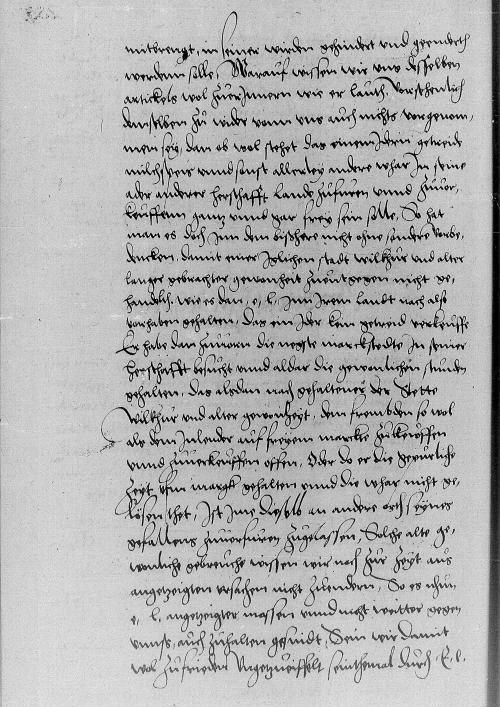 mitbrengt, in seiner wirden gehindert und geendert
werdenn solle, Warauf wissen wir uns desselben
artickels wol zuerJnnern wie er lauth, Vorsehenlich
demselben zu wider vonn uns auch nichts vorgenom-
men sey, dan ob wol stehet das einem Jdern getreide
milchspeis unnd sonst allerley andere whar Jn seine
ader anderer herschafft landt zufuren unnd zuvor-
keuffenn gantz unnd gar frey sein solle, So hat
man es doch Jnn dem bißhere nicht ohne sondere Vorbe-
dencken, damit einer Jglichen stadt wilkhur und alter
langer gebrachter gewonheit zuentgegen nicht ge-
handelt. wie es dan, e, l, Jnn Jrem landt nach also
vorhaben gehalten, Das ein Jder kein getreid verkeuffe
Er habe dan zuvoren die negste marckstedte Jn seiner
herschafft besucht unnd aldar die gewonlichen stunden
gehalten, das alsdan nach gehaltener der Stette
Wilkhur und alter gewonheyt, dem frembden so wol
als dem Jnlender auf freyem marckt zukeuffen
unnd zuverkeuffen offen, Oder do er die geburliche
zeyt ihm margk gehalten unnd die whar nicht ge-
lösen thet, Jst Jme dieselb an andere orth seynes
gefallens zuverfuren zugelassen, Solche alte ge-
wonliche gebreuche wissen wir noch zur zeyt aus
angezeigten ursachen nicht zuendern, So es nhun
e, l, angezeigter massen unnd nicht weitter gegen
unns, auch zuhalten gesindt, Sein wir damit
wol zufrieden Ungezweiffelt seintemal durch, E, l,